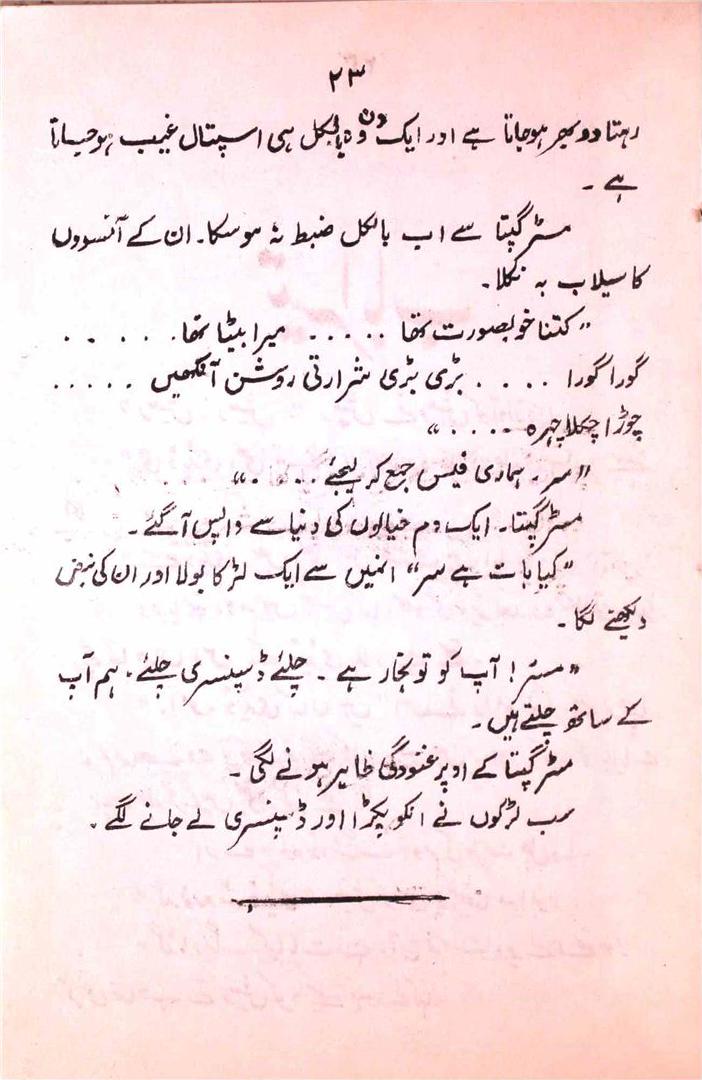 ۲۳
رہتا دوبھر ہوجاتا ہے اور ایک دن وہ بالکل ہی اسپتال غیب ہوجاتا
ہے ۔
مسٹر گپتا سے اب بالکل ضبط نہ ہوسکا۔ ان کے آنسووں
کا سیلاب بہ نکلا۔
”کتنا خوبصورت تھا ..... میرا بیٹا تھا......
گورا گورا .... بڑی بڑی شرارتی روشن آنکھیں .....
چوڑا چکلا چہرہ ....“
”سر۔ ہماری فیس جمع کر لیجئے ....“
مسٹر گپتا۔ ایک دم خیالوں کی دنیا سے واپس آگئے۔
”کیا بات ہے سر“ انہیں سے ایک لڑکا بولا اور ان کی نبض
دیکھنے لگا۔
”مسٹر! آپ کو تو بخار ہے ۔ چلئے ڈسپنسری چلئے، ہم آپ
کے ساتھ چلتے ہیں۔
مسٹر گپتا کے اوپر غنودگی ظاہر ہونے لگی ۔
سب لڑکوں نے انکو پکڑا اور ڈسپنسری لے جانے لگے۔